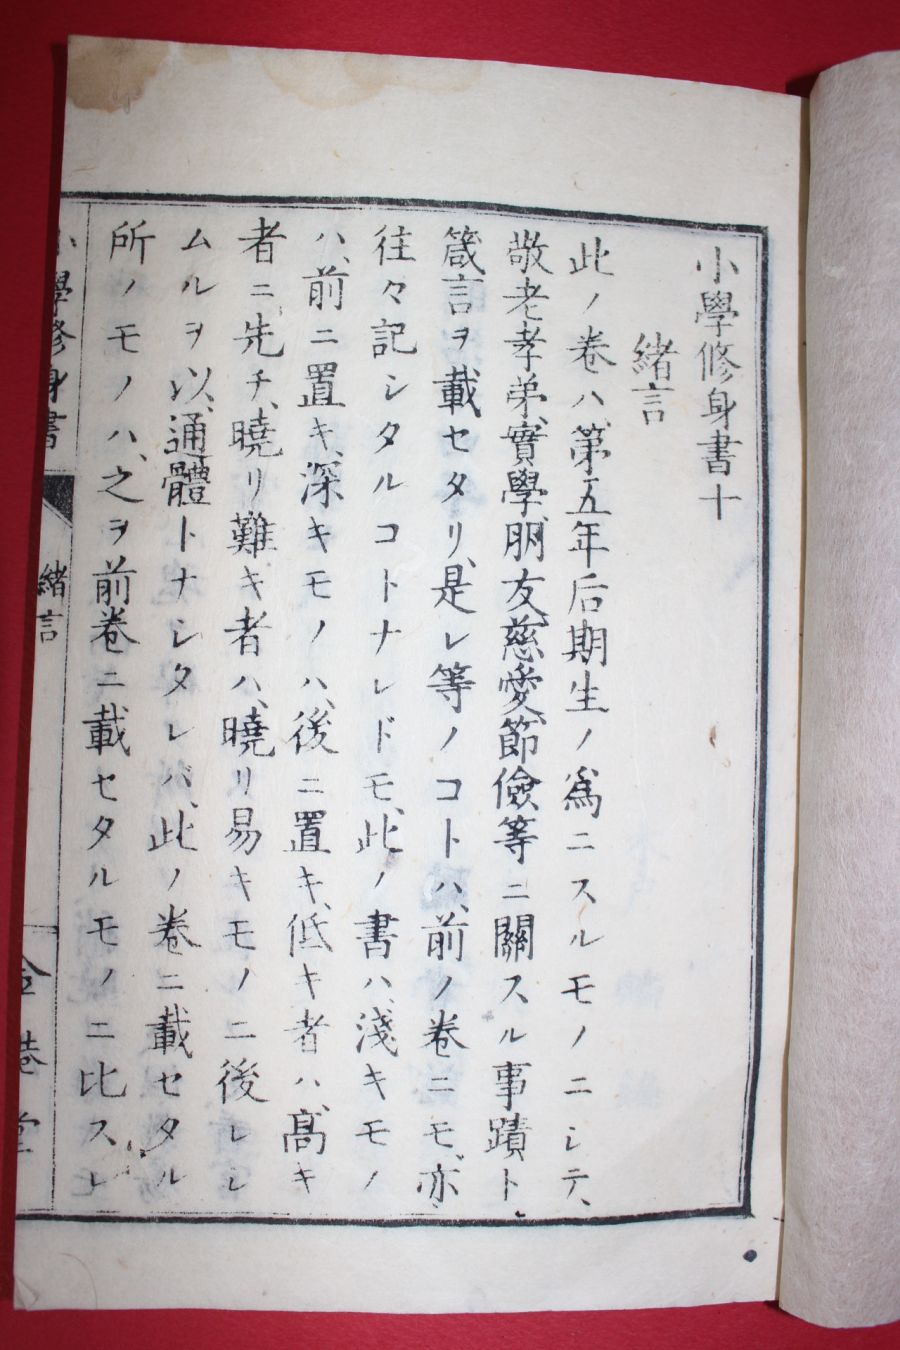 小學修身書十
緒言
此ノ卷ハ、第五年后期生ノ爲ニスルモノニシテ、
敬老孝弟、實學、朋友、慈愛、節儉等ニ關スル事蹟ト、
箴言ヲ載セタリ、是レ等ノコトハ、前ノ卷ニモ、亦
往々記シタルコトナレドモ、此ノ書ハ、淺キモノ
ハ、前ニ置キ、深キモノハ、後ニ置キ、低キ者ハ、高キ
者ニ先チ、曉リ難キ者ハ、曉リ易キモノニ後レシ
ムルヲ以、通體トナシタレバ、此ノ卷ニ載セタル
所ノモノハ、之ヲ前卷ニ載セタルモノニ比スレ
小學修身書
緒言
金港堂